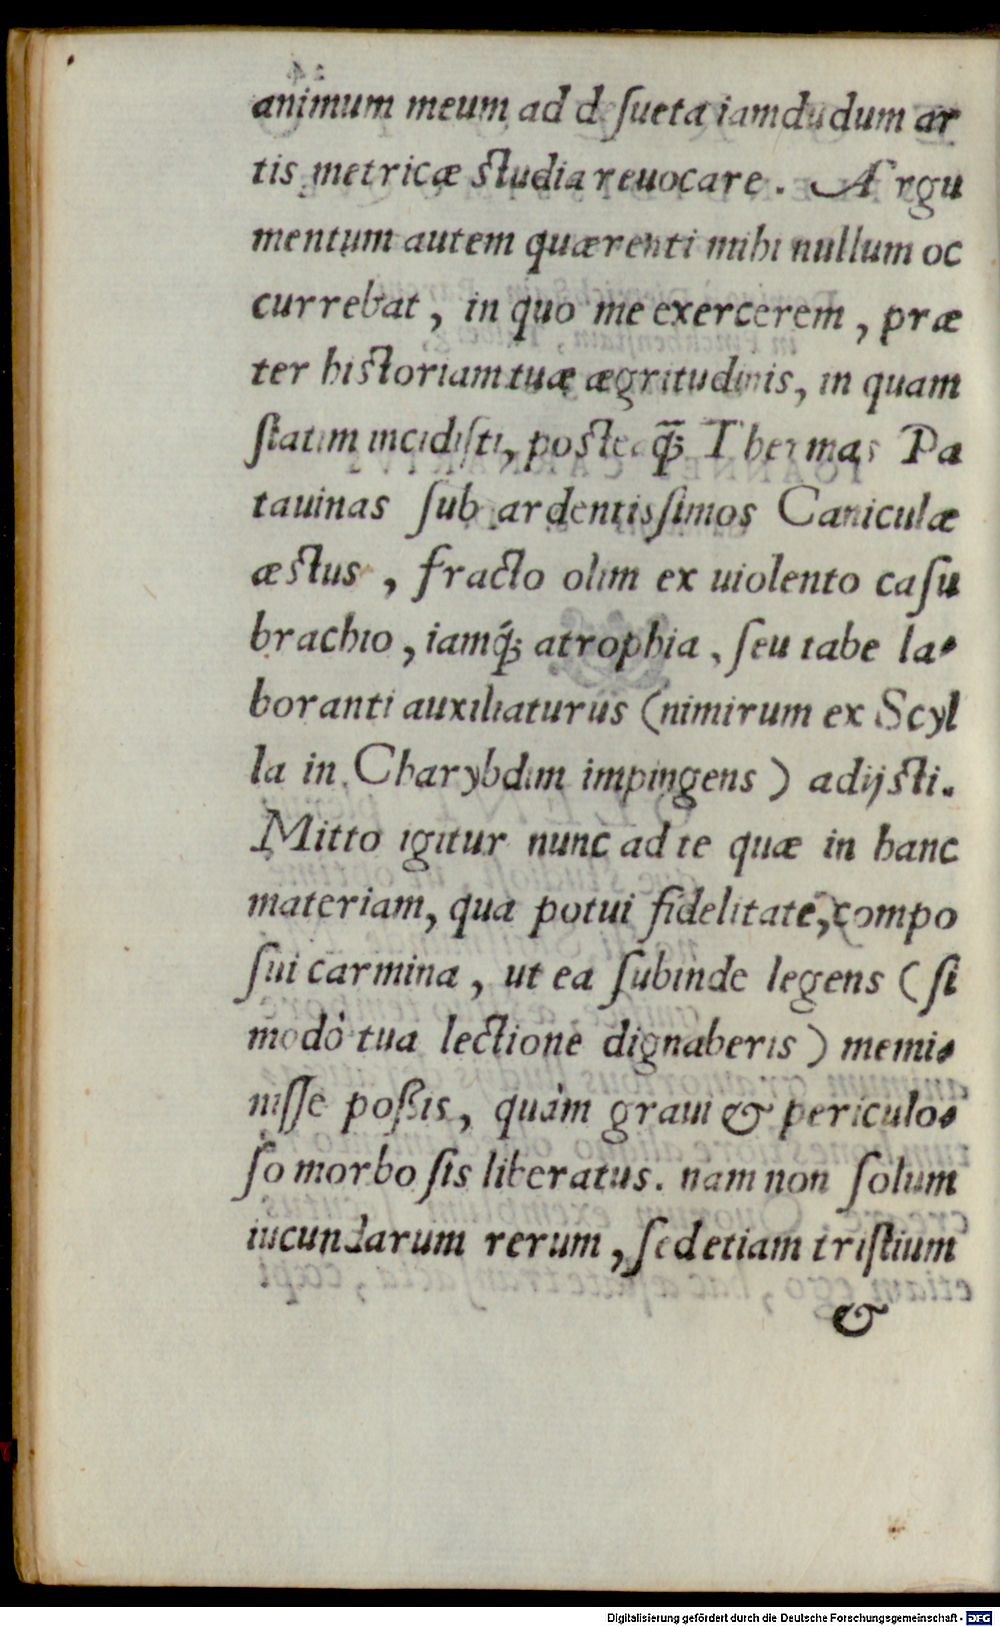 animum meum ad deſueta iamdudum ar
tis metricæ ſtudia reuocare. Argu
mentum autem quærenti mihi nullum oc
currebat, in quo me exercerem, præ
ter hiſtoriam tuæ ægritudinis, in quam
ſtatim incidiſti, poſteaq̃ꝫ Thermas Pa
tauinas ſub ardentisſimos Caniculæ
æſtus, fracto olim ex uiolento caſu
brachio, iamq́ꝫ atrophia, ſeu tabe la-
boranti auxiliaturus (nimirum ex Scyl
la in Charybdim impingens) adijſti.
Mitto igitur nunc ad te quæ in hanc
materiam, qua potui fidelitate, compo
ſui carmina, ut ea ſubinde legens (ſi
modò tua lectione dignaberis) memi-
niſſe poßis, quàm graui & periculo-
ſo morbo ſis liberatus. nam non ſolum
iucundarum rerum, ſed etiam triſtium
&
Digitalisierung gefördert durch die Deutsche Forschungsgemeinschaft - DFG